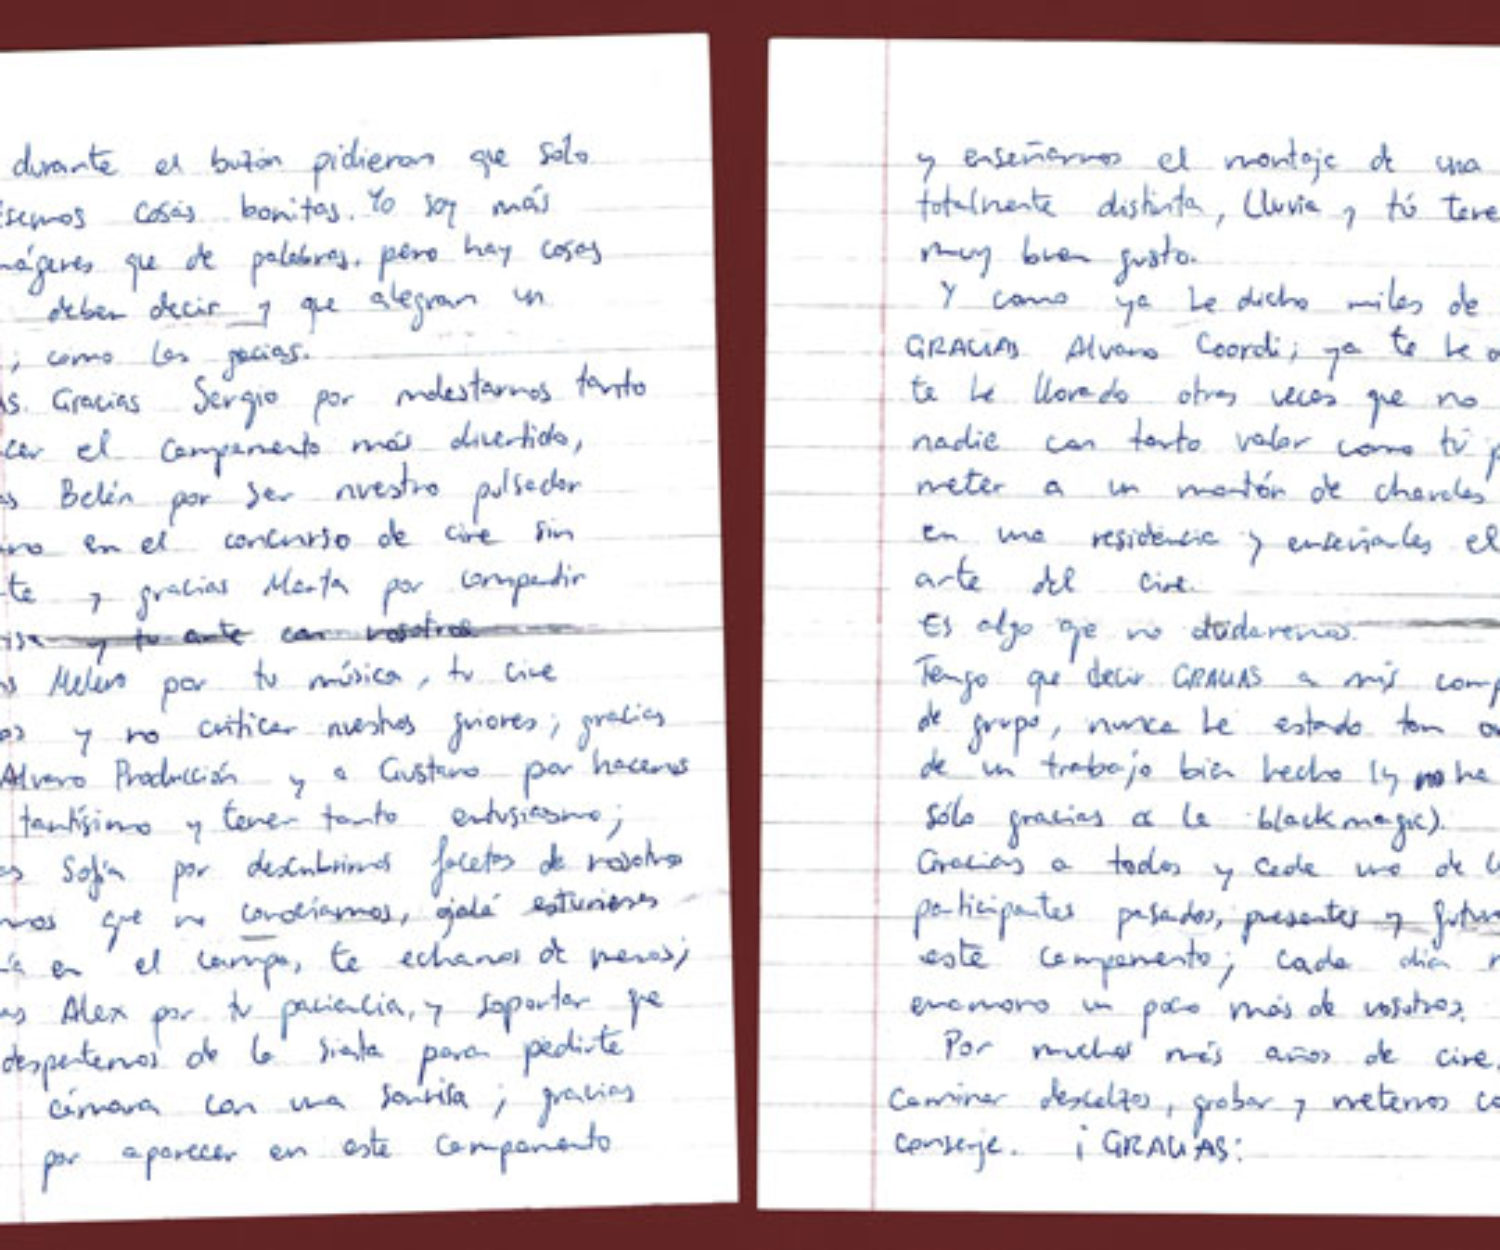 durante el buzón pidieron que solo
cosas bonitas. Yo soy más
que de palabras, pero hay cosas
deben decir y que alegran un
; como las gacias.
Gracias Sergio por molestarnos tanto
el campamento más divertido,
Belén por ser nuestro pulsador
en el concurso de cine sin
y gracias Marta por compartir
y tu arte con nosotros
Melero por tu música, tu cine
y no criticar nuestros guiones; gracias
Alvaro Producción y a Gustavo por hacernos
tantísimo y tener tanto entusiasmo;
Sofía por descubrirnos facetas de nosotros
que no conocíamos, ojalá estuvieses
en el campo, te echamos de menos;
Alex por tu paciencia, y soportar que
despertemos de la siesta para pedirte
cámara con una sonrisa; gracias
por aparecer en este campamento
y enseñarnos el montaje de una
totalmente distinta, Lluvia y tú
muy buen gusto.
Y como ya he dicho miles de
GRACIAS Alvaro Coordi; ya te he
te he llorado otras veces que no
nadie con tanto valor como tú
meter a un montón de chavales
en una residencia y enseñarles el
arte del cine.
Es algo que no
Tengo que decir GRACIAS a mis
de grupo, nunca he estado tan
de un trabajo bien hecho (y no ha
sólo gracias a la blackmagic).
Gracias a todos y cada uno de
participantes pasados, presentes y
este campamento; cada día
enamoro un poco más de vosotros.
Por muchos más años de cine,
caminar descalzos, grabar y meternos
conserje. ¡GRACIAS!